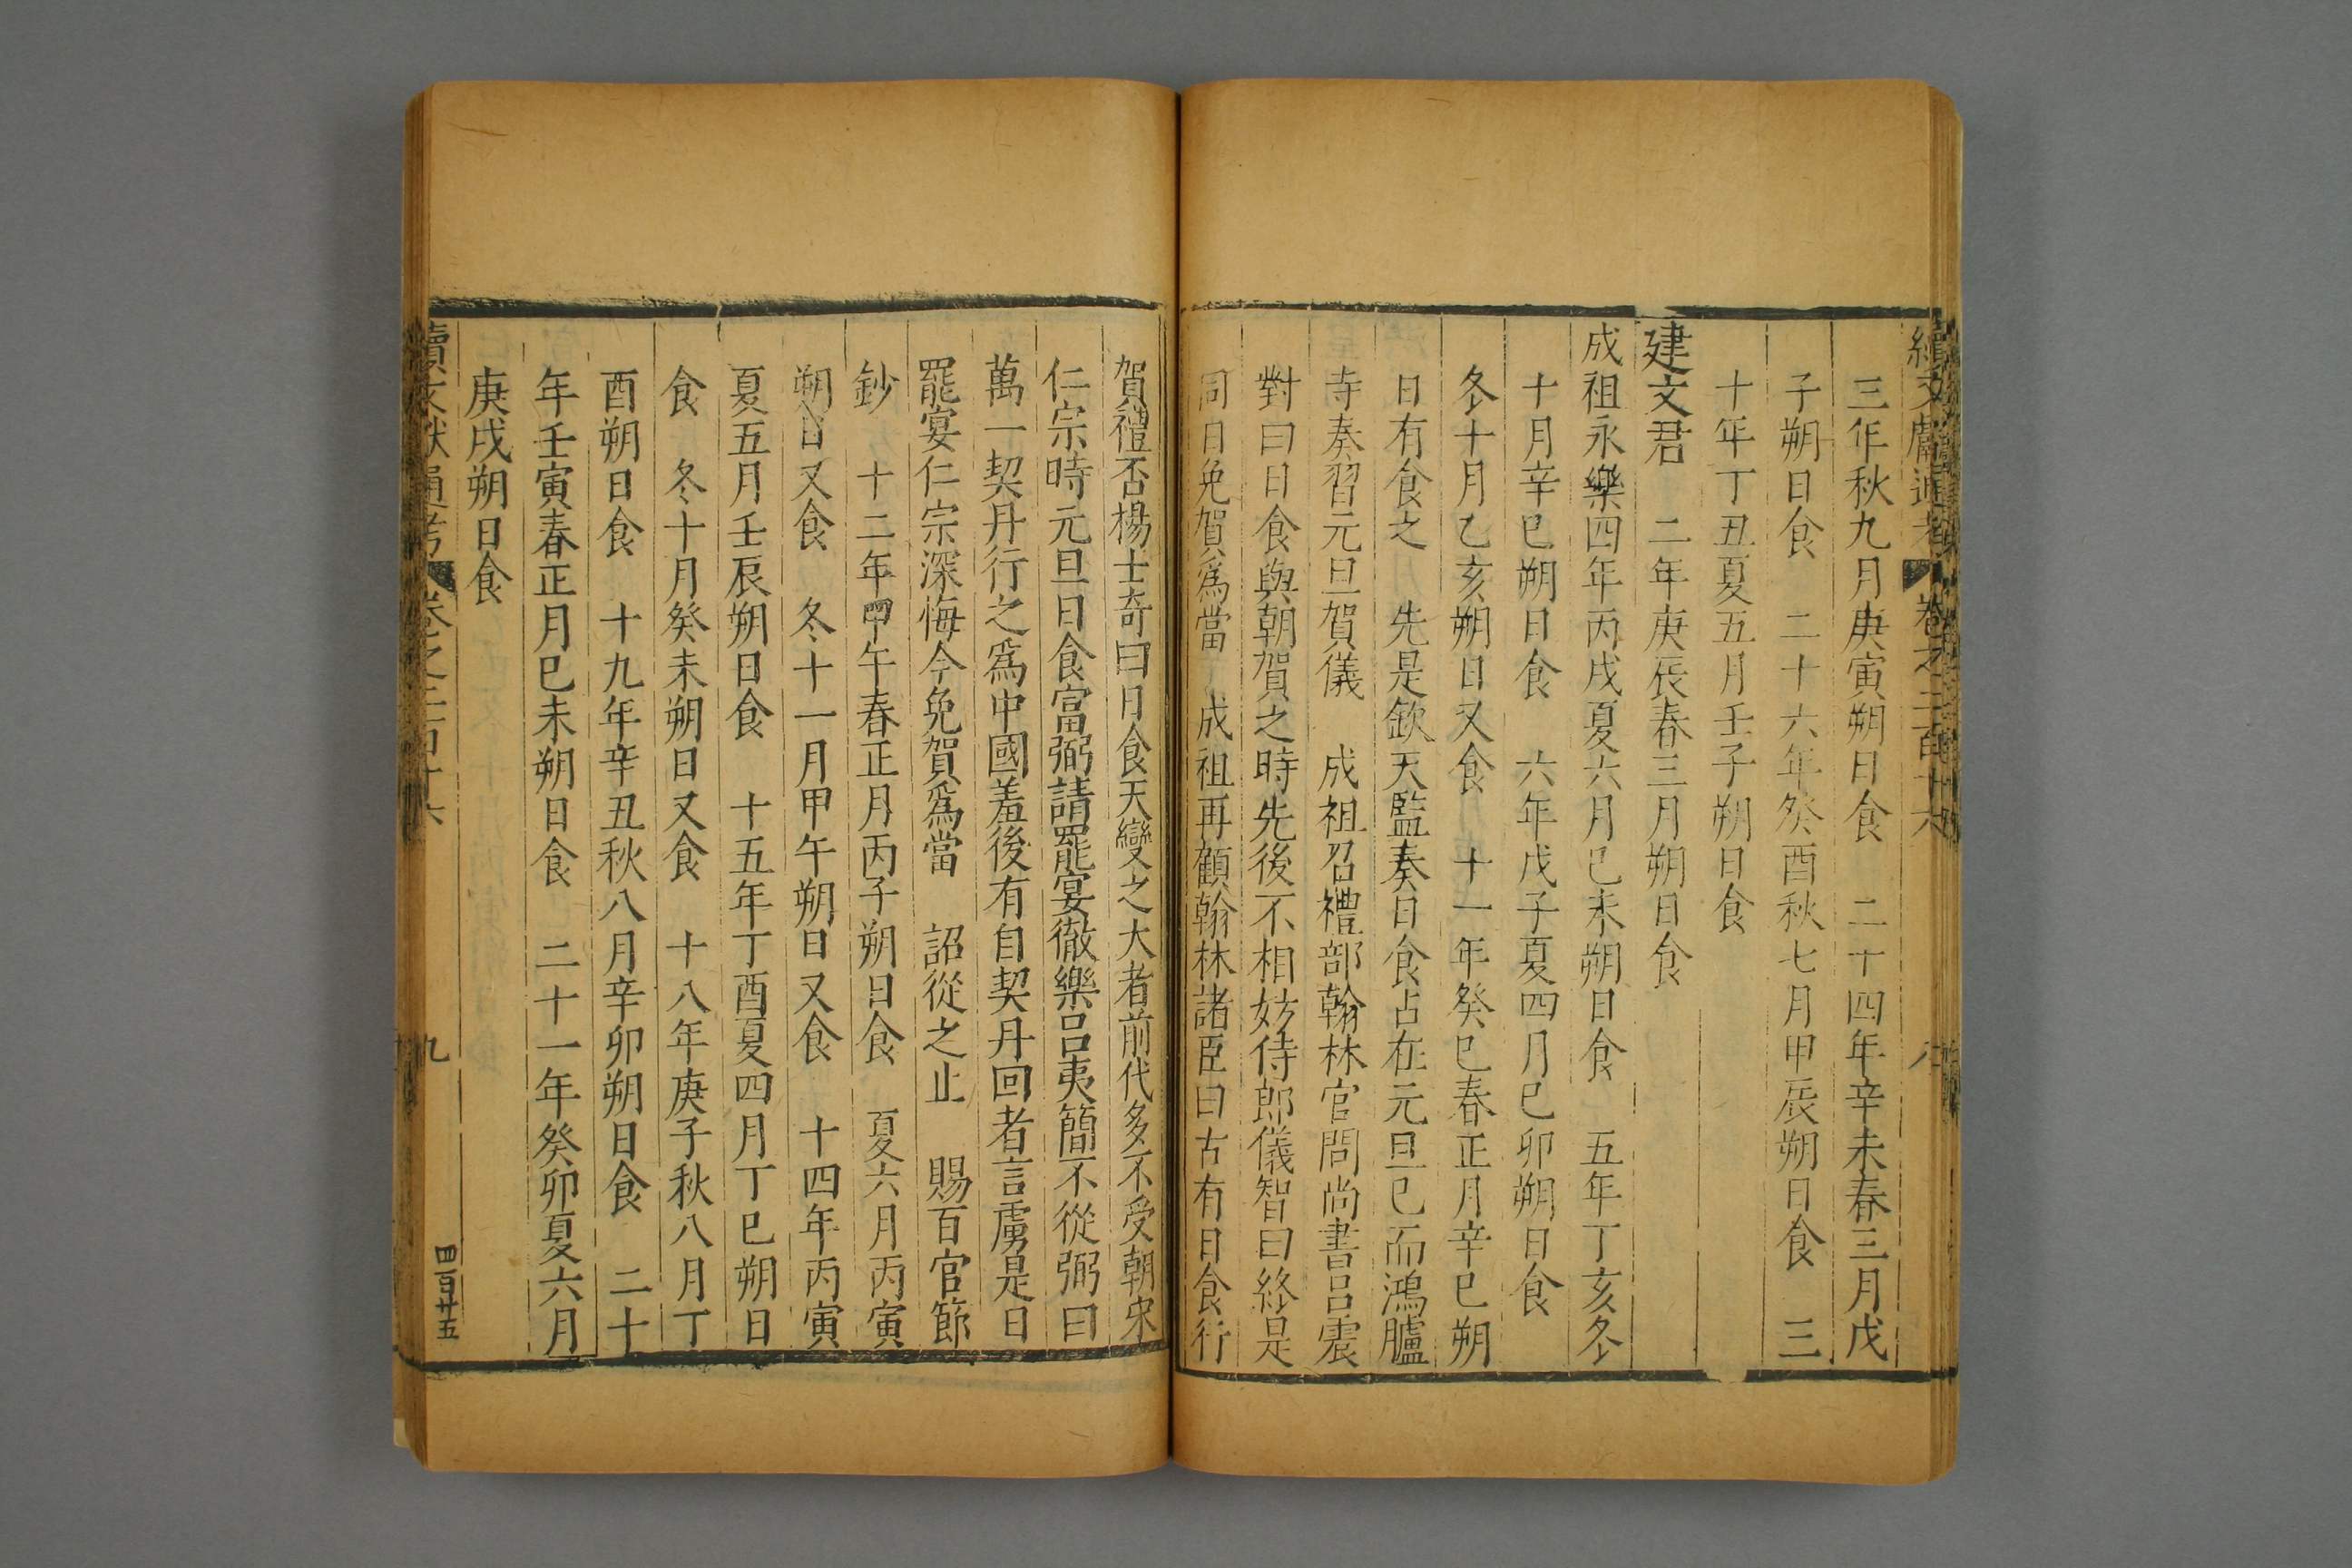 續文獻通考 卷之二百十六 八
三年秋九月庚寅朔日食 二十四年辛未春三月戊
子朔日食 二十六年癸酉秋七月甲辰朔日食 三
十年丁丑夏五月壬子朔日食
建文君 二年庚辰春三月朔日食
成祖永樂四年丙戌夏六月己未朔日食 五年丁亥冬
十月辛巳朔日食 六年戊子夏四月己卯朔日食
冬十月乙亥朔日又食 十一年癸巳春正月辛巳朔
日有食之 先是欽天監奏日食占在元旦已而鴻臚
寺奏習元旦賀儀 成祖召禮部翰林官問尚書呂震
對曰日食與朝賀之時先後不相妨侍郎儀智曰終是
同日免賀爲當 成祖再顧翰林諸臣曰古有日食行
賀禮否楊士奇曰日食天變之大者前代多不受朝宋
仁宗時元旦日食富弼請罷宴徹樂呂夷簡不從弼曰
萬一契丹行之爲中國羞後有自契丹回者言虜是日
罷宴仁宗深悔今免賀爲當 詔從之止 賜百官節
鈔 十二年甲午春正月丙子朔日食 夏六月丙寅
朔日又食 冬十一月甲午朔日又食 十四年丙寅
夏五月壬辰朔日食 十五年丁酉夏四月丁巳朔日
食 冬十月癸未朔日又食 十八年庚子秋八月丁
酉朔日食 十九年辛丑秋八月辛卯朔日食 二十
年壬寅春正月巳未朔日食 二十一年癸卯夏六月
庚戌朔日食
續文獻通考 卷之二百十六 九
四百廿五